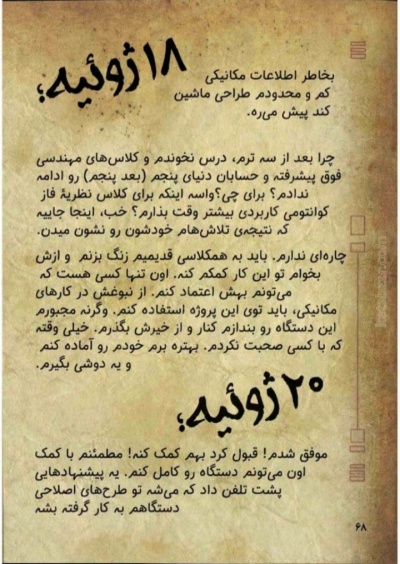 ۱۸ ژوئیه؛
بخاطر اطلاعات مکانیکی
کم و محدودم طراحی ماشین
کند پیش می‌ره.
چرا بعد از سه ترم، درس نخوندم و کلاس‌های مهندسی
فوق پیشرفته و حسابان دنیای پنجم (بعد پنجم) رو ادامه
ندادم؟ برای چی؟واسه اینکه برای کلاس نظریهٔ فاز
کوانتومی کاربردی بیشتر وقت بذارم؟ خب، اینجا جاییه
که نتیجه‌ی تلاش‌هام خودشون رو نشون میدن.
چاره‌ای ندارم. باید به همکلاسی قدیمیم زنگ بزنم و ازش
بخوام تو این کار کمکم کنه. اون تنها کسی هست که
می‌تونم بهش اعتماد کنم. از نبوغش در کارهای
مکانیکی، باید توی این پروژه استفاده کنم. وگرنه مجبورم
این دستگاه رو بندازم کنار و از خیرش بگذرم. خیلی وقته
که با کسی صحبت نکردم. بهتره برم خودم رو آماده کنم
و یه دوشی بگیرم.
۲۰ ژوئیه؛
موفق شدم! قبول کرد بهم کمک کنه! مطمئنم با کمک
اون می‌تونم دستگاه رو کامل کنم. یه پیشنهادهایی
پشت تلفن داد که می‌شه تو طرح‌های اصلاحی
دستگاهم به کار گرفته بشه
۶۸